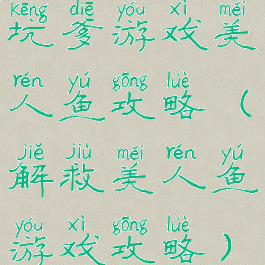 kēng diē yóu xì měi
坑爹游戏美
rén yú gōng lüè
人鱼攻略（
jiě jiù měi rén yú
解救美人鱼
yóu xì gōng lüè
游戏攻略）